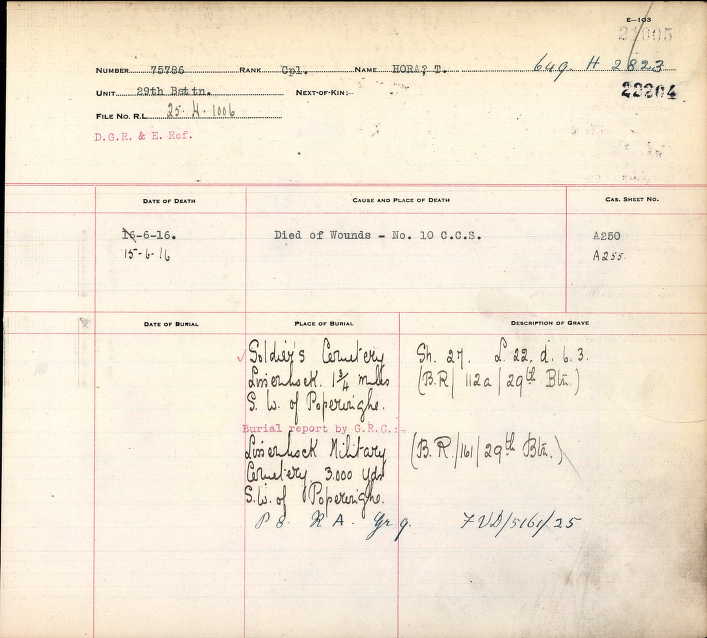 E—103
21005
NUMBER 75786 RANK Cpl. NAME HORA, T. 649 H 2823
UNIT 29th Battn. NEXT-OF-KIN:— 22204
FILE NO. R.L. 25. H. 1006
D.G.R. & E. Ref.
DATE OF DEATH CAUSE AND PLACE OF DEATH CAS. SHEET NO.
16-6-16. Died of Wounds - No. 10 C.C.S. A250
15-6-16 A255.
DATE OF BURIAL PLACE OF BURIAL DESCRIPTION OF GRAVE
Soldier's Cemetery Sh. 27. L 22. d. 6. 3.
Lissenhock. 1 3/4 miles (B.R/ 112a / 29th Btn.)
S. W. of Poperinghe.
Burial report by G.R.C.:-
Lissenhock Military (B. R./161/29th Btn.)
Cemetery 3.000 yds
S.W. of Poperinghe.
R A. Gr 9. 7VD/5161/25